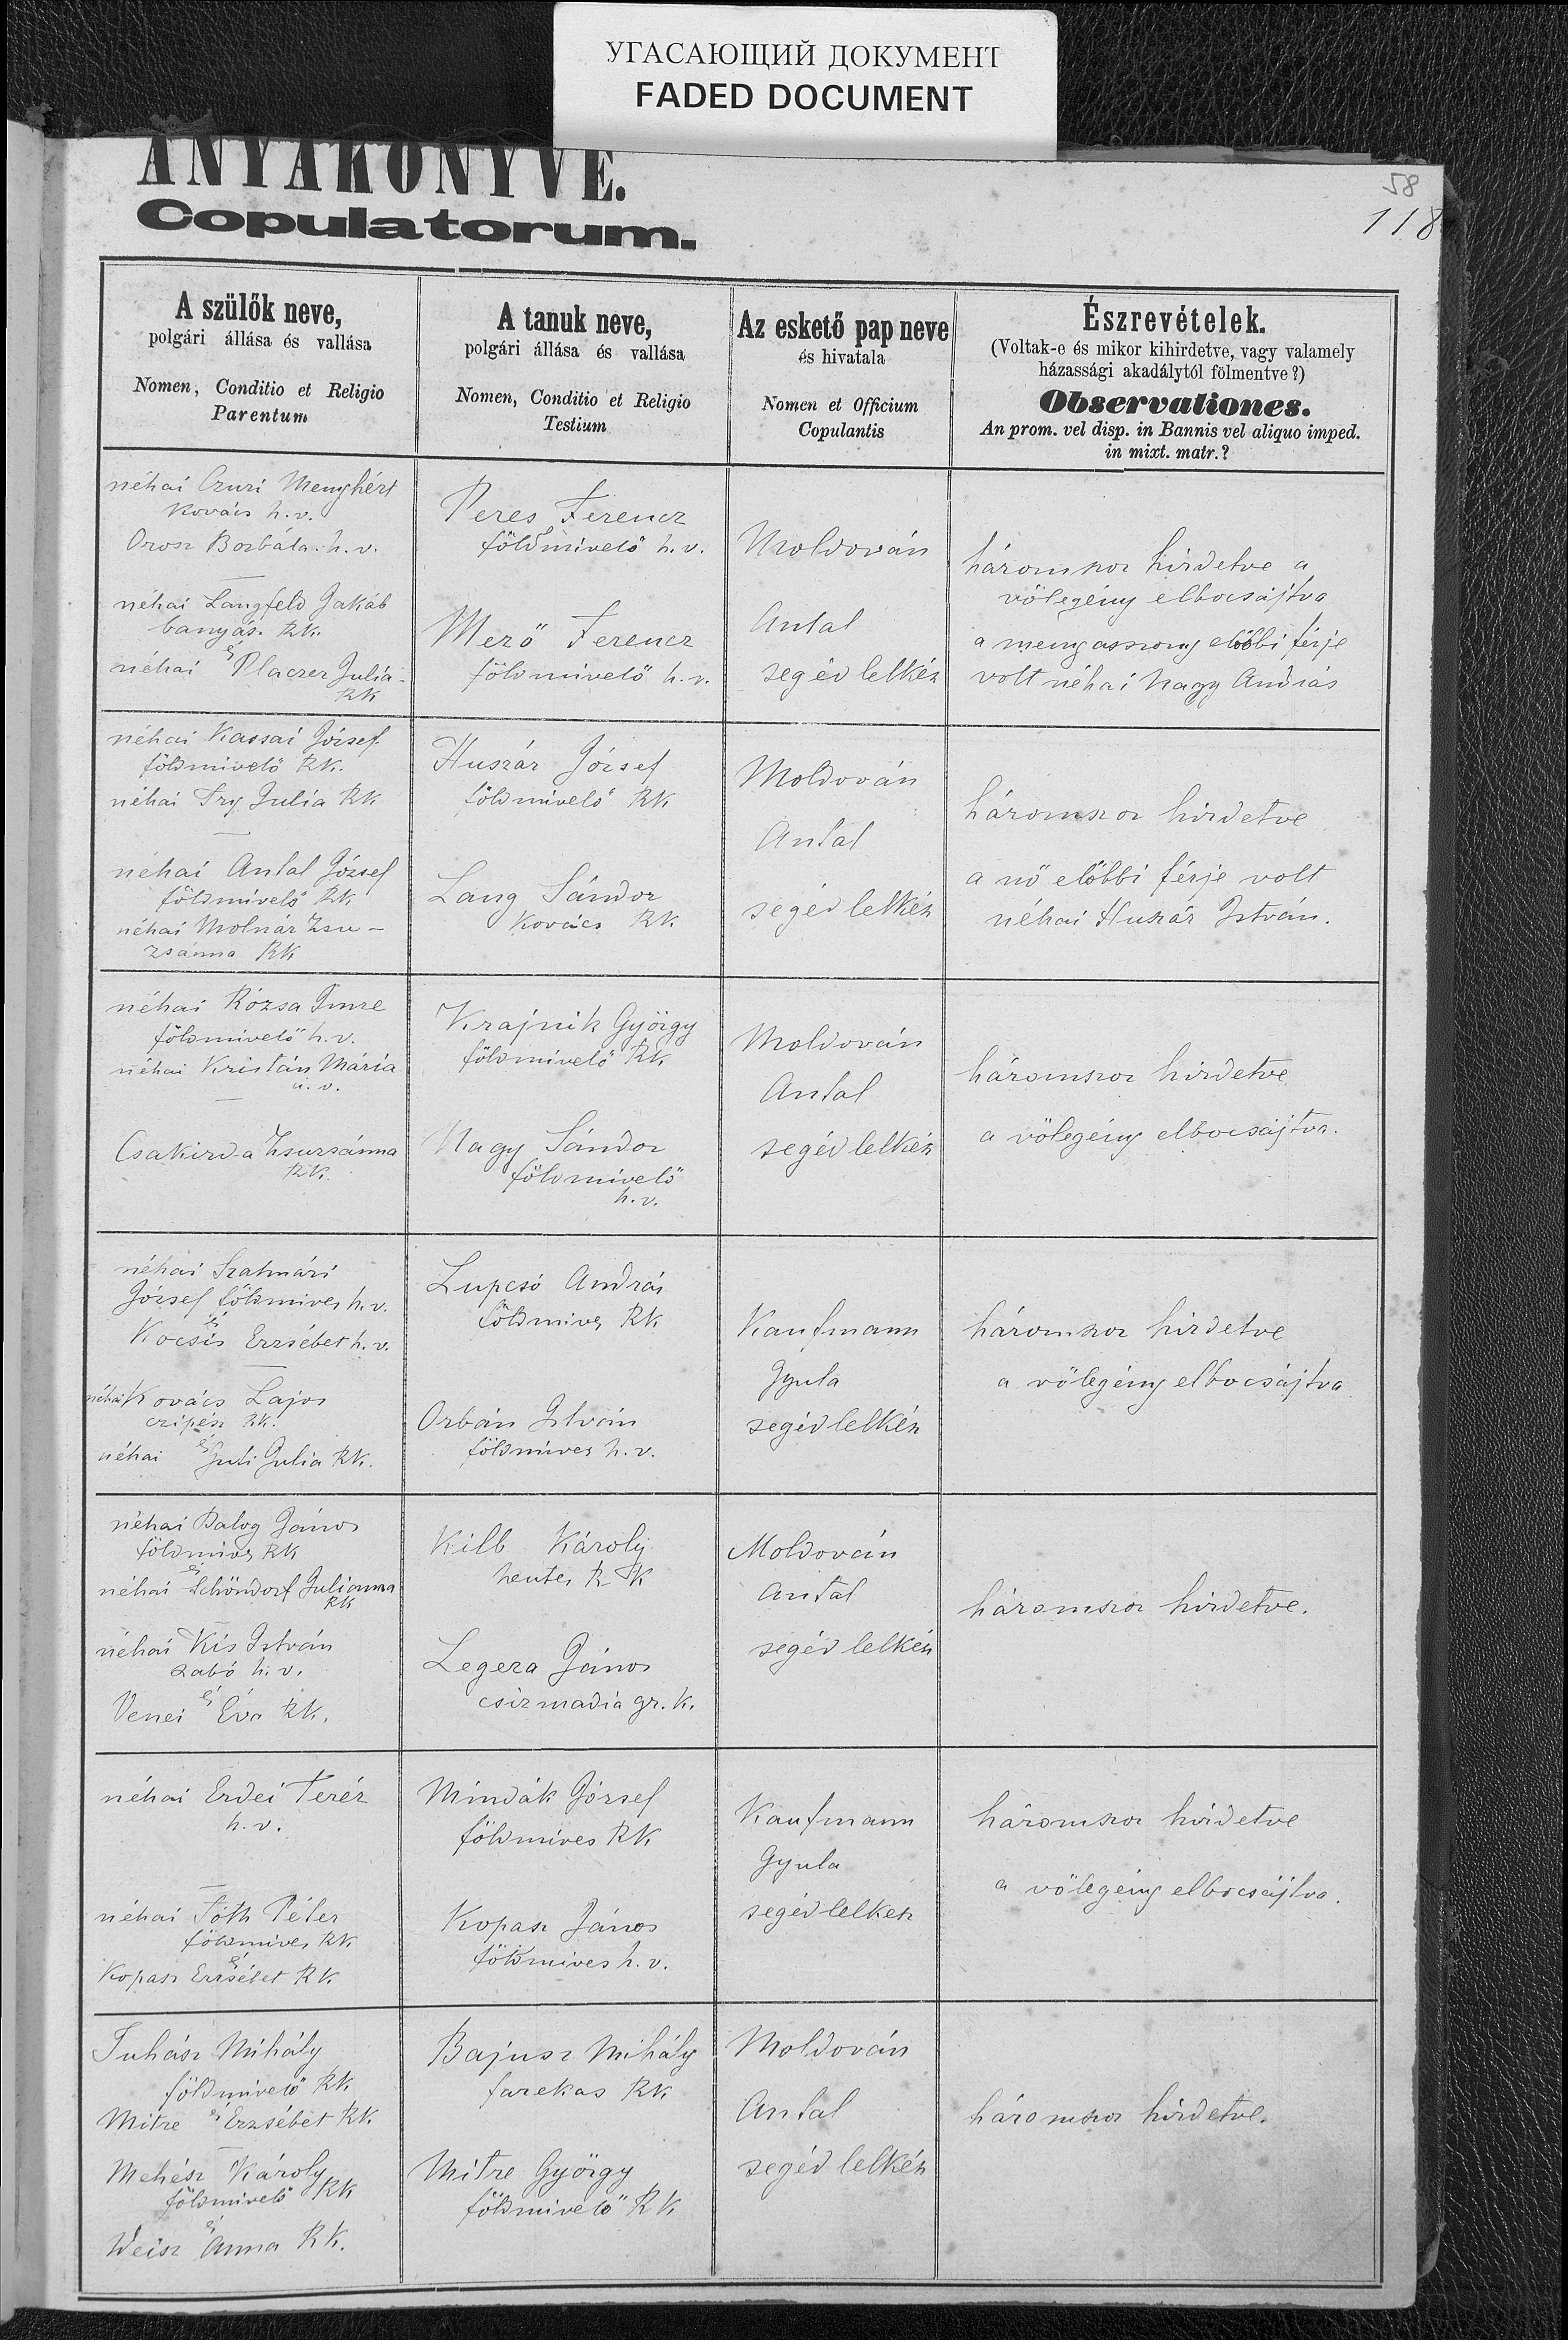 УГАСАЮЩИЙ ДОКУМЕНТ
FADED DOCUMENT
ANYAKÖNYVE.
Copulatorum.
58
118
A szülők neve,
polgári állása és vallása
Nomen, Conditio et Religio
Parentum
A tanuk neve,
polgári állása és vallása
Nomen, Conditio et Religio
Testium
Az eskető pap neve
és hivatala
Nomen et Officium
Copulantis
Észrevételek.
(Voltak-e és mikor kihirdetve, vagy valamely
házassági akadálytól fölmentve?)
Observationes.
An prom. vel disp. in Bannis vel aliquo imped.
in mixt. matr.?
néhai Czuri Menyhért
Kovács h. v.
Orosz Borbála. h. v.
néhai Langfeld Jakab
banyás. RK.
és
néhai Placzer Julia
RK
Peres Ferencz
földmivelő h. v.
Merő Ferencz
földmivelő h. v.
Moldován
Antal
segéd lelkész
háromszor hirdetve a
völegény elbocsájtva
a menyasszony előbbi férje
volt néhai Nagy András
néhai Kassai József
földmivelő RK.
néhai Fry Julia RK
néhai Antal József
földmivelő RK
néhai Molnár Zsu-
zsánna RK
Huszár József
földmivelő RK
Lang Sándor
Kovács RK
Moldován
Antal
segéd lelkész
háromszor hirdetve
a nő előbbi férje volt
néhai Huszár István.
néhai Rózsa Imre
földmivelő h. v.
néhai Kristán Mária
u. v.
Csakirda Zsuzsánna
RK.
Krajnik György
földmivelő RK
Nagy Sándor
földmivelő
h. v.
Moldován
Antal
segéd lelkész
háromszor hirdetve
a völegény elbocsájtva.
néhai Szatmári
József földmives h. v.
és
Kocsis Erzsébet h. v.
néhai Kovács Lajos
czipész RK.
és
néhai Guti Julia RK.
Lupcsó András
földmives RK
Orbán István
földmives h. v.
Kaufmann
Gyula
segéd lelkész
háromszor hirdetve
a völegény elbocsájtva
néhai Balog János
földmives RK
és
néhai Schöndorf Julianna
RK
néhai Kis István
szabó h. v.
és
Venei Éva RK.
Kilb Károly
hentes R K
Legeza János
csizmadia gr. K.
Moldován
Antal
segéd lelkész
háromszor hirdetve.
néhai Erdei Teréz
h. v.
néhai Tóth Péter
földmives RK
és
Kopasz Erzsébet RK
Mindák József
földmives RK
Kopasz János
földmives h. v.
Kaufmann
Gyula
segéd lelkész
háromszor hirdetve
a völegény elbocsájtva.
Juhász Mihály
földmivelő RK
Mitre és Erzsébet RK
Mehész Károly
földmivelő RK
és
Weisz Anna RK.
Bajusz Mihály
farekas RK
Mitre György
földmivelő RK
Moldován
Antal
segéd lelkész
háromszor hirdetve.